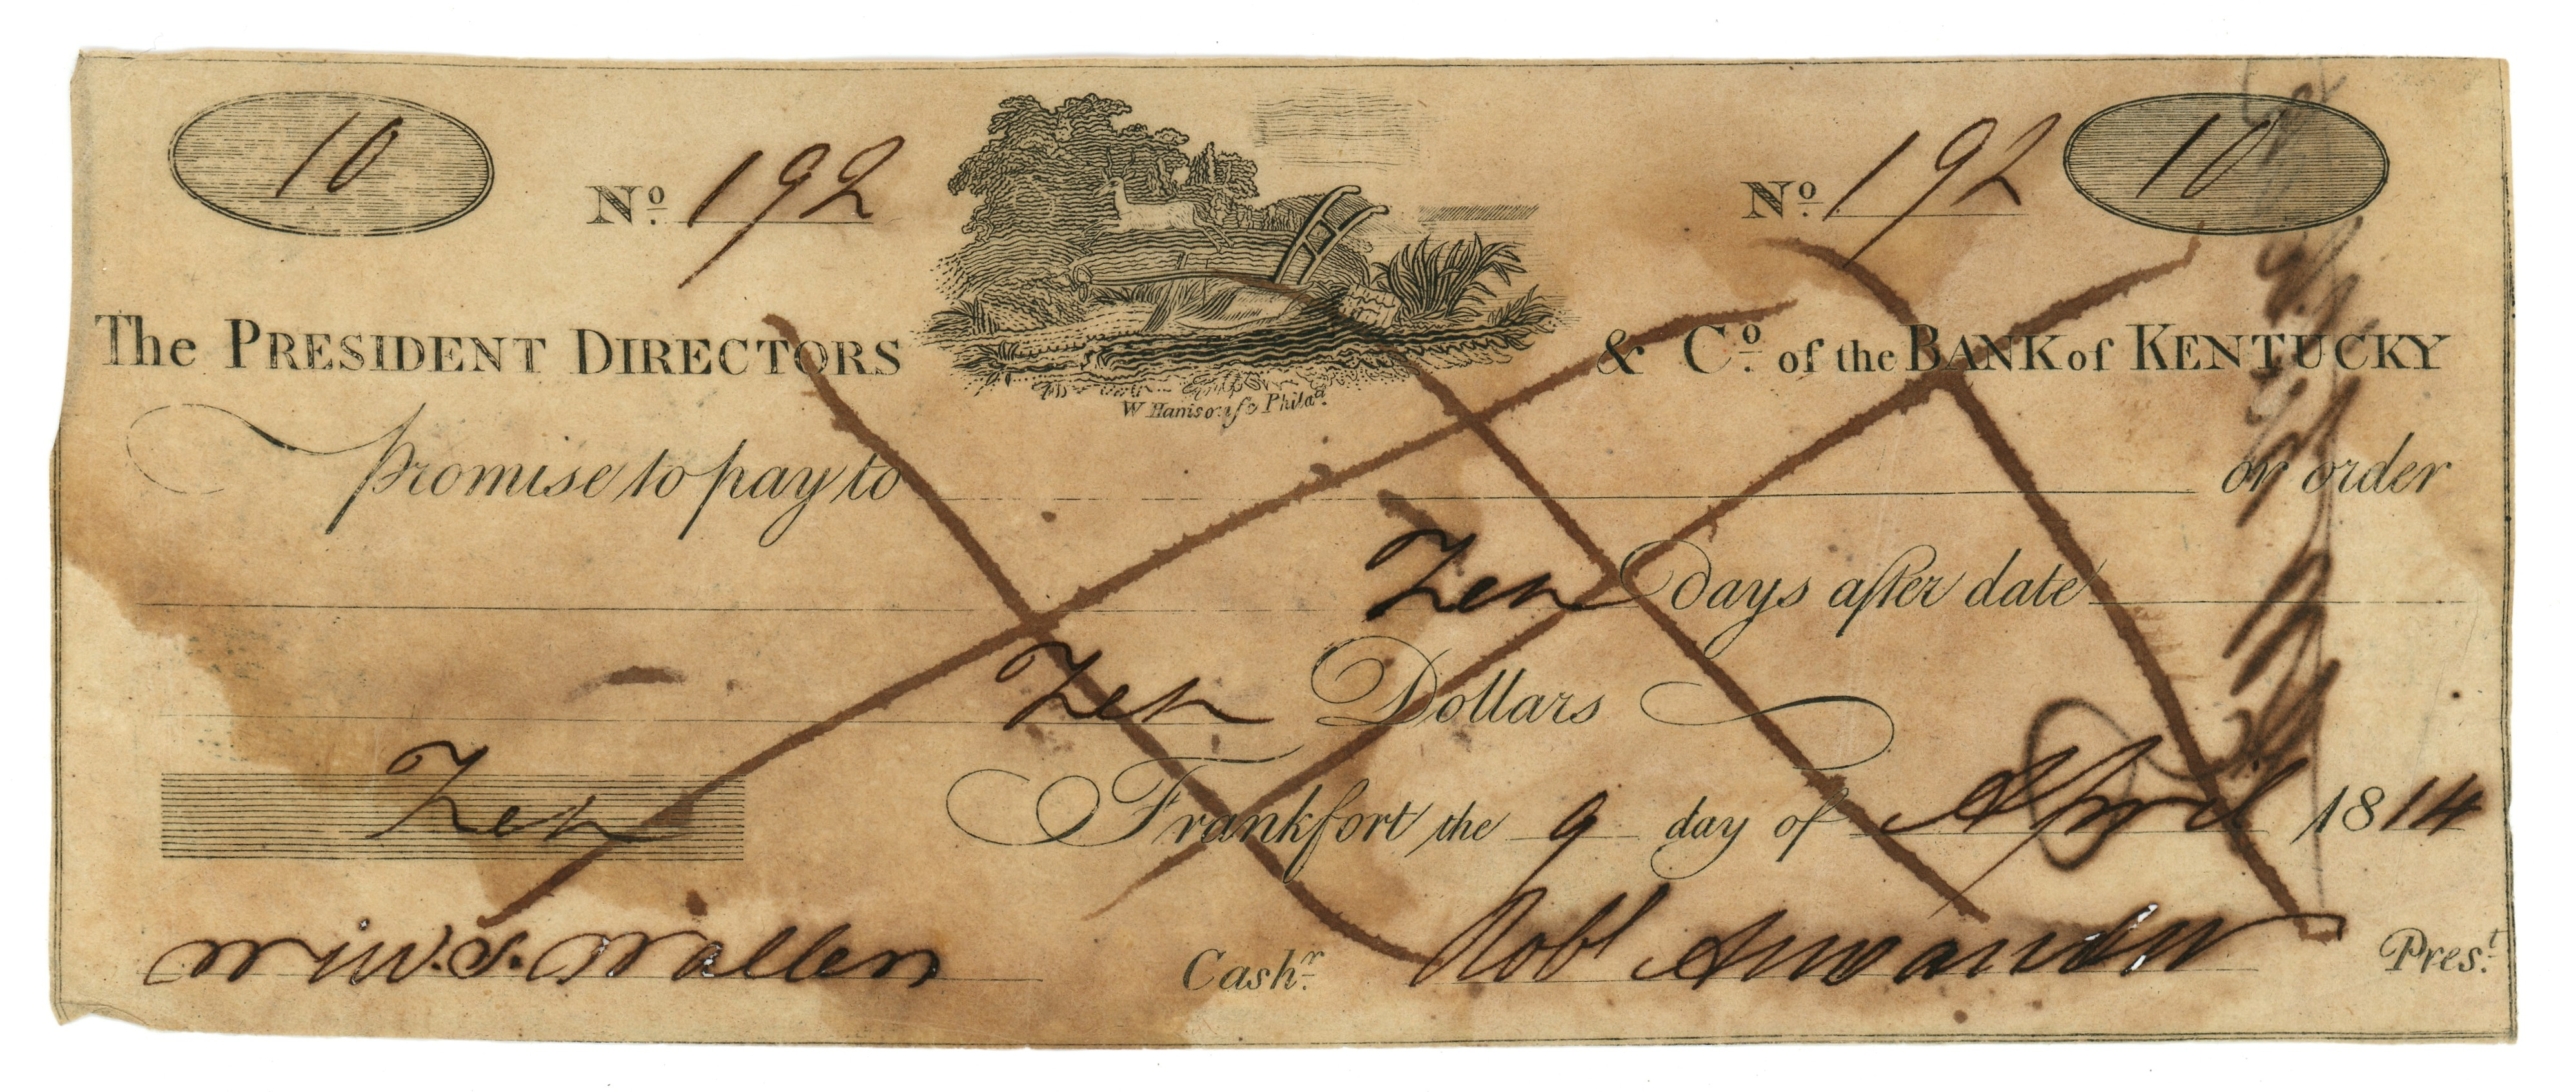 10 No. 192 No. 192 10
The PRESIDENT DIRECTORS & Co. of the BANK of KENTUCKY
W Harrison Philada.
promise to pay to or order
Ten Days after date
Ten Dollars
Ten Frankfort the 9 day of April 1814
Cashr. Robt Pres.t